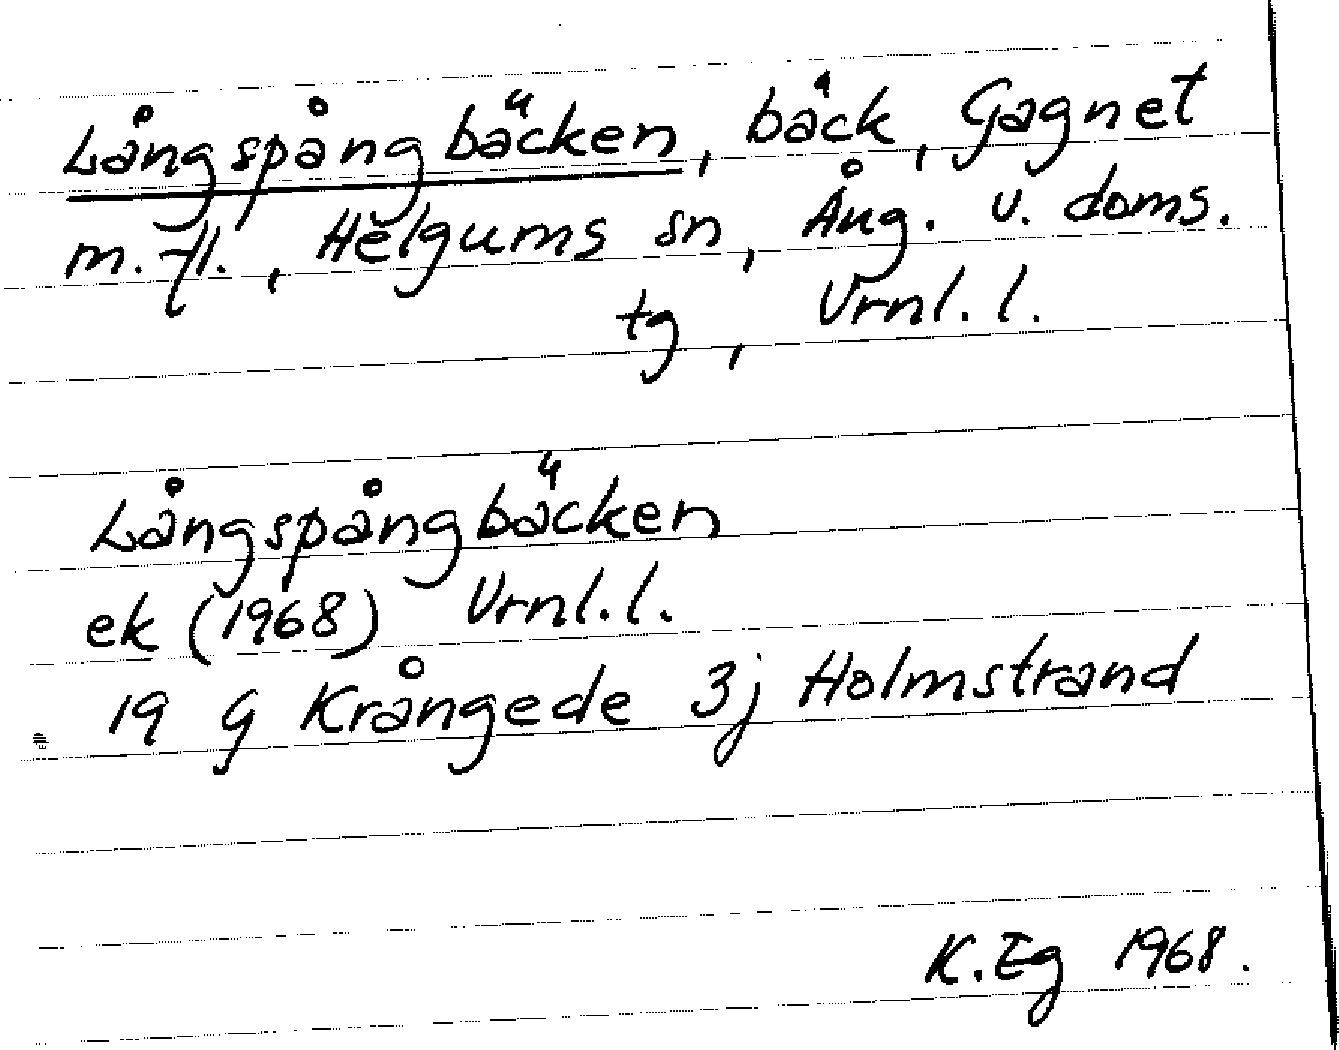 Långspångbäcken, bäck, Gagnet
m. fl., Helgums sn, Ång. v. doms.
tg, Vrnl. l.
Långspångbäcken
ek (1968) Vrnl. l.
19 G Krångede 3j Holmstrand
K. Eg 1968.